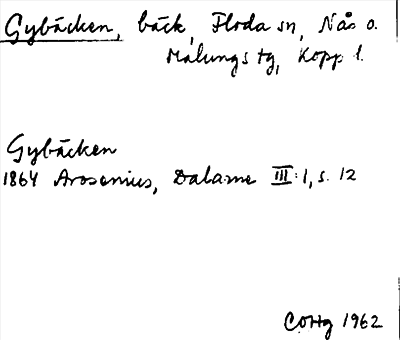 Gybäcken, bäck, Floda sn, Nås o.
Malungs tg, Kopp l.
Gybäcken
1864 Arosenius, Dalarne III:1, s. 12
COHg 1962